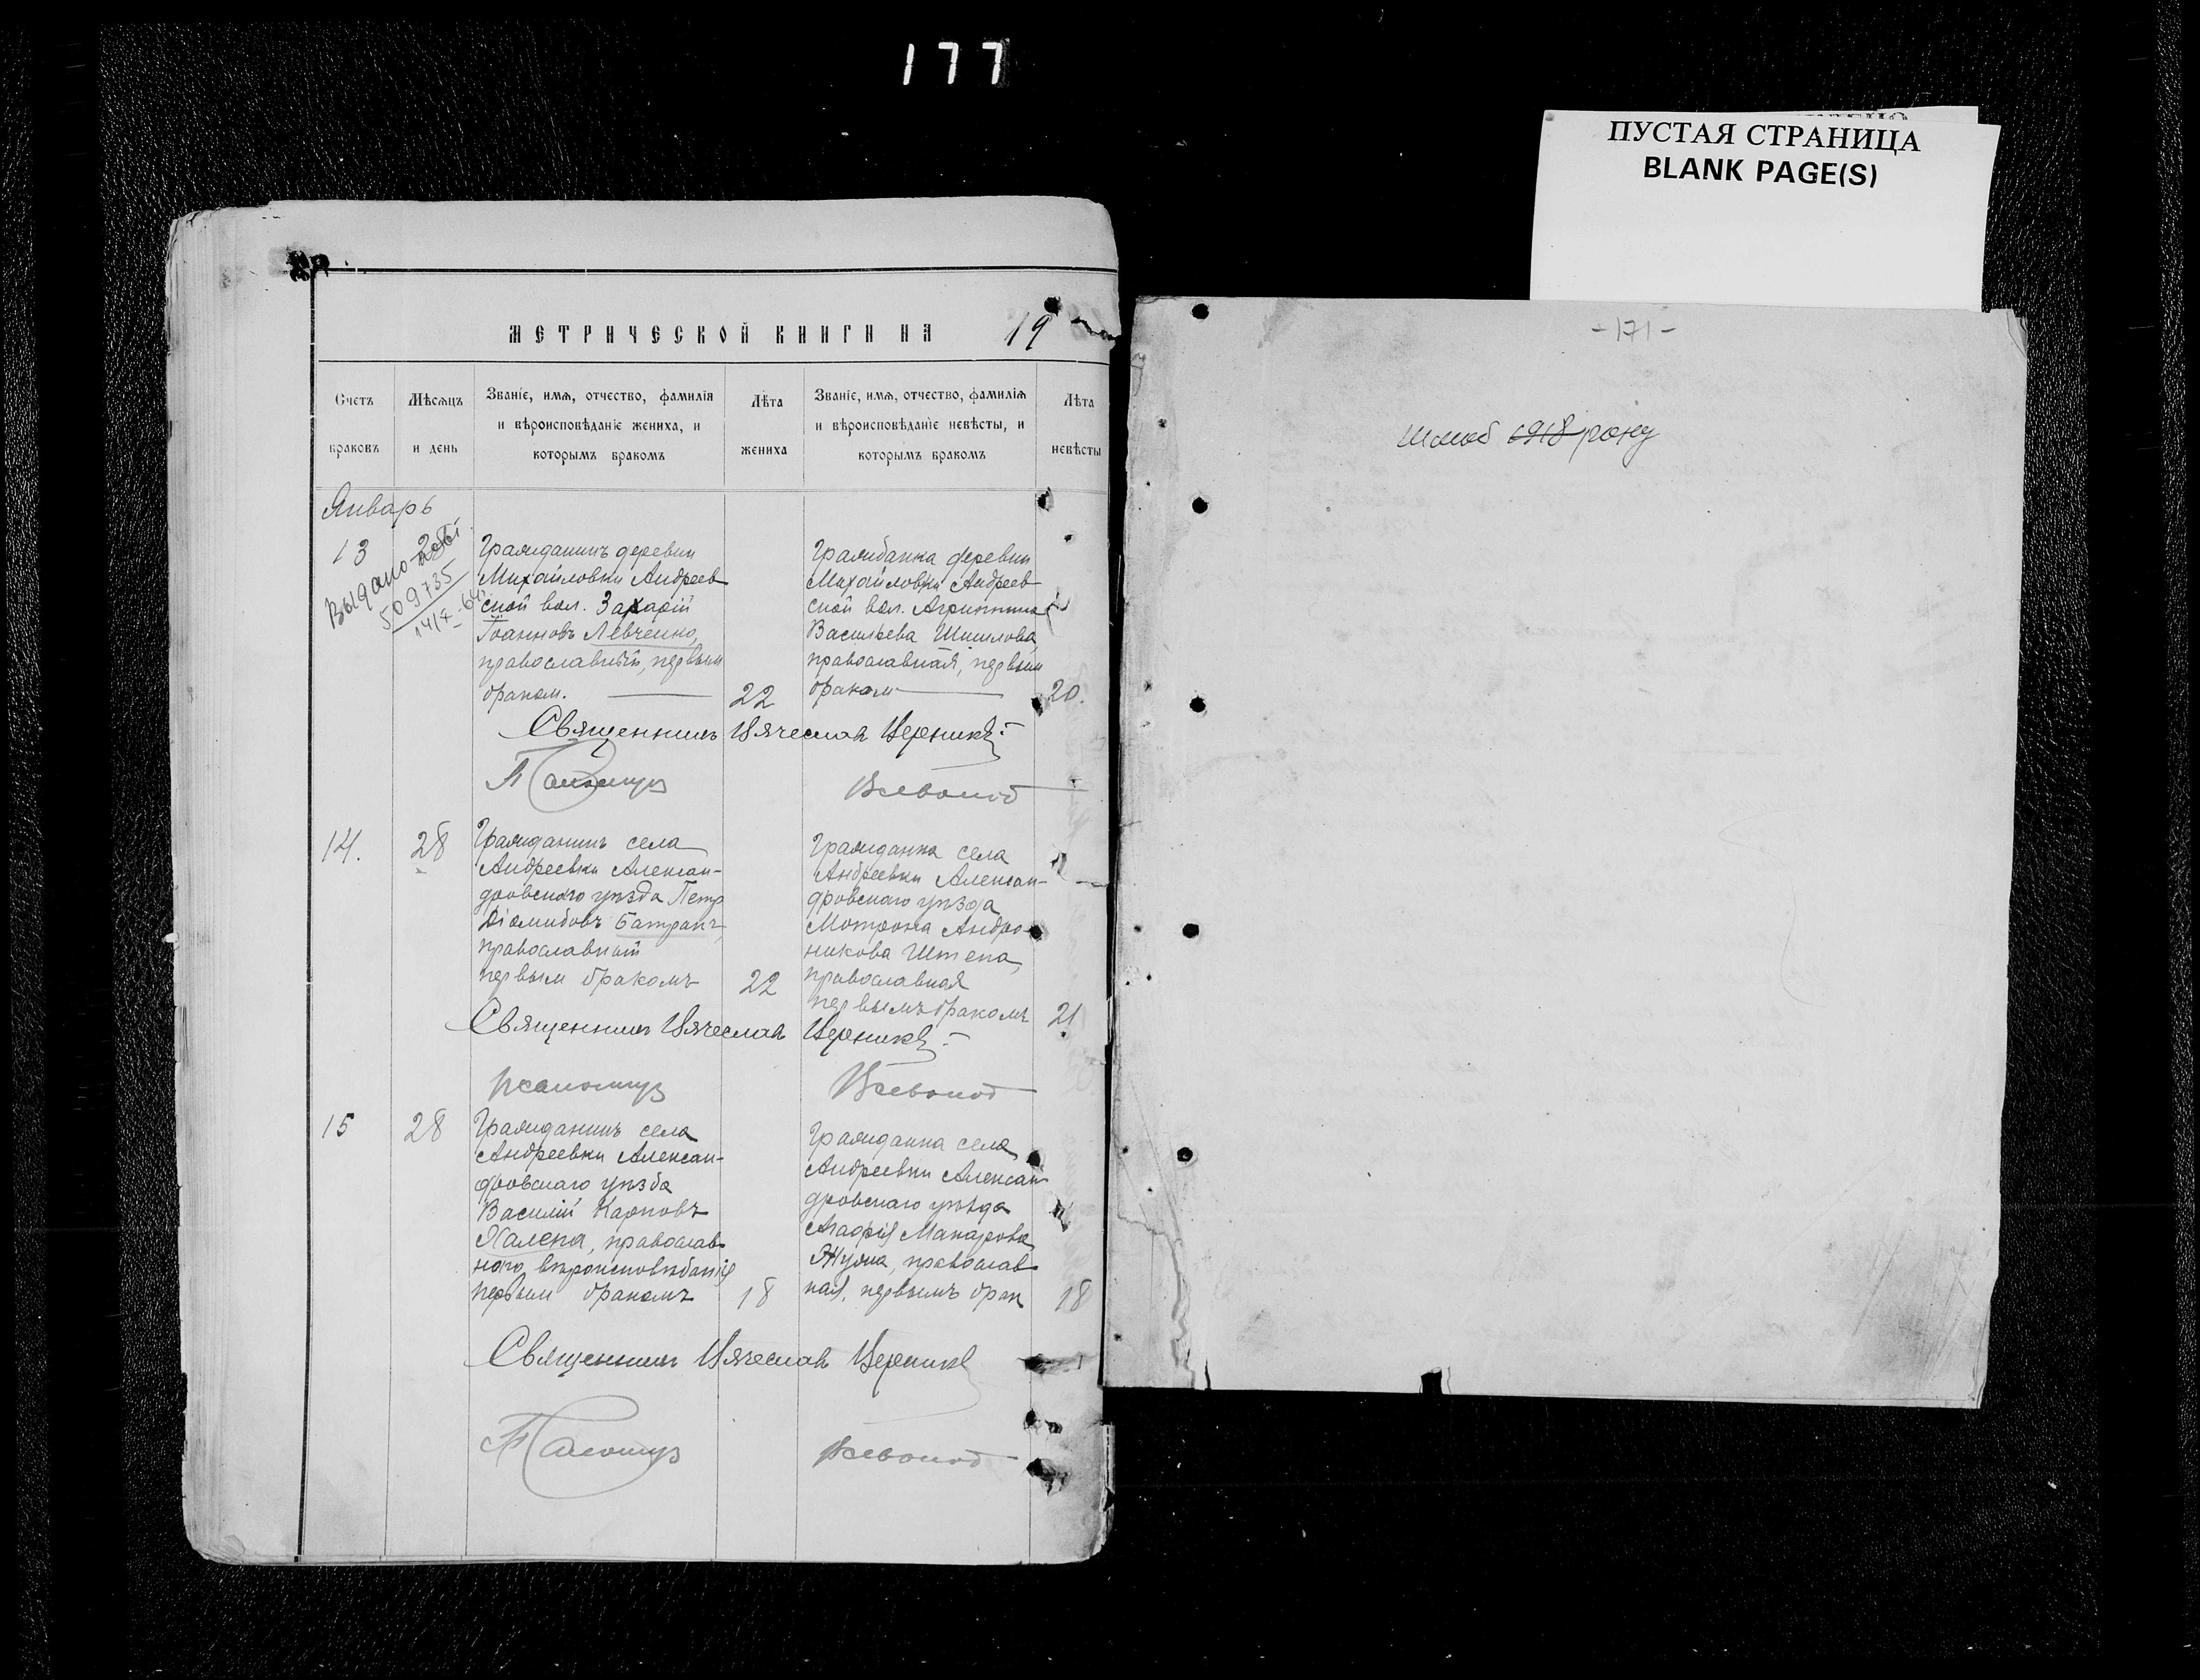 177
ПУСТАЯ СТРАНИЦА
BLANK PAGE(S)
МЕТРИЧЕСКОЙ КНИГИ НА 19
Счетъ браковъ
Мѣсяцъ и день
Званіе, имя, отчество, фамилія
и вѣроисповѣданіе жениха, и
которымъ бракомъ
Лѣта жениха
Званіе, имя, отчество, фамилія
и вѣроисповѣданіе невѣсты, и
которымъ бракомъ
Лѣта невѣсты
Январь
13
Выдано
509735
Гражданинъ деревни
Михайловки Андреев
ской вол. Захарій
Іоанновъ Левченко,
православный, первым
браком.
22
Гражданка деревни
Михайловки Андреев
ской вол. Агриппина
Васильева Шишлова,
православная, первым
браком
20.
Священникъ Вячеслав
14.
28
Гражданинъ села
Андреевки Алексан-
дровского уѣзда Петр
Діомидовъ Батракъ,
православный
первым бракомъ
22
Гражданка села
Андреевки Алексан-
дровскаго уѣзда
Мотрона Андро-
никова Штепа,
православная
первымъ бракомъ
21
Священникъ Вячеслав
15
28
Гражданинъ села
Андреевки Алексан-
дровскаго уѣзда
Василій Карповъ
Халепа, православ
наго вѣроисповѣданія
первым бракомъ
18
Гражданка села
Андреевки Алексан
дровскаго уѣзда
Макарова
православ
ная, первымъ брак
18
Священникъ Вячеслав
-171-
Шлюб 1918 року